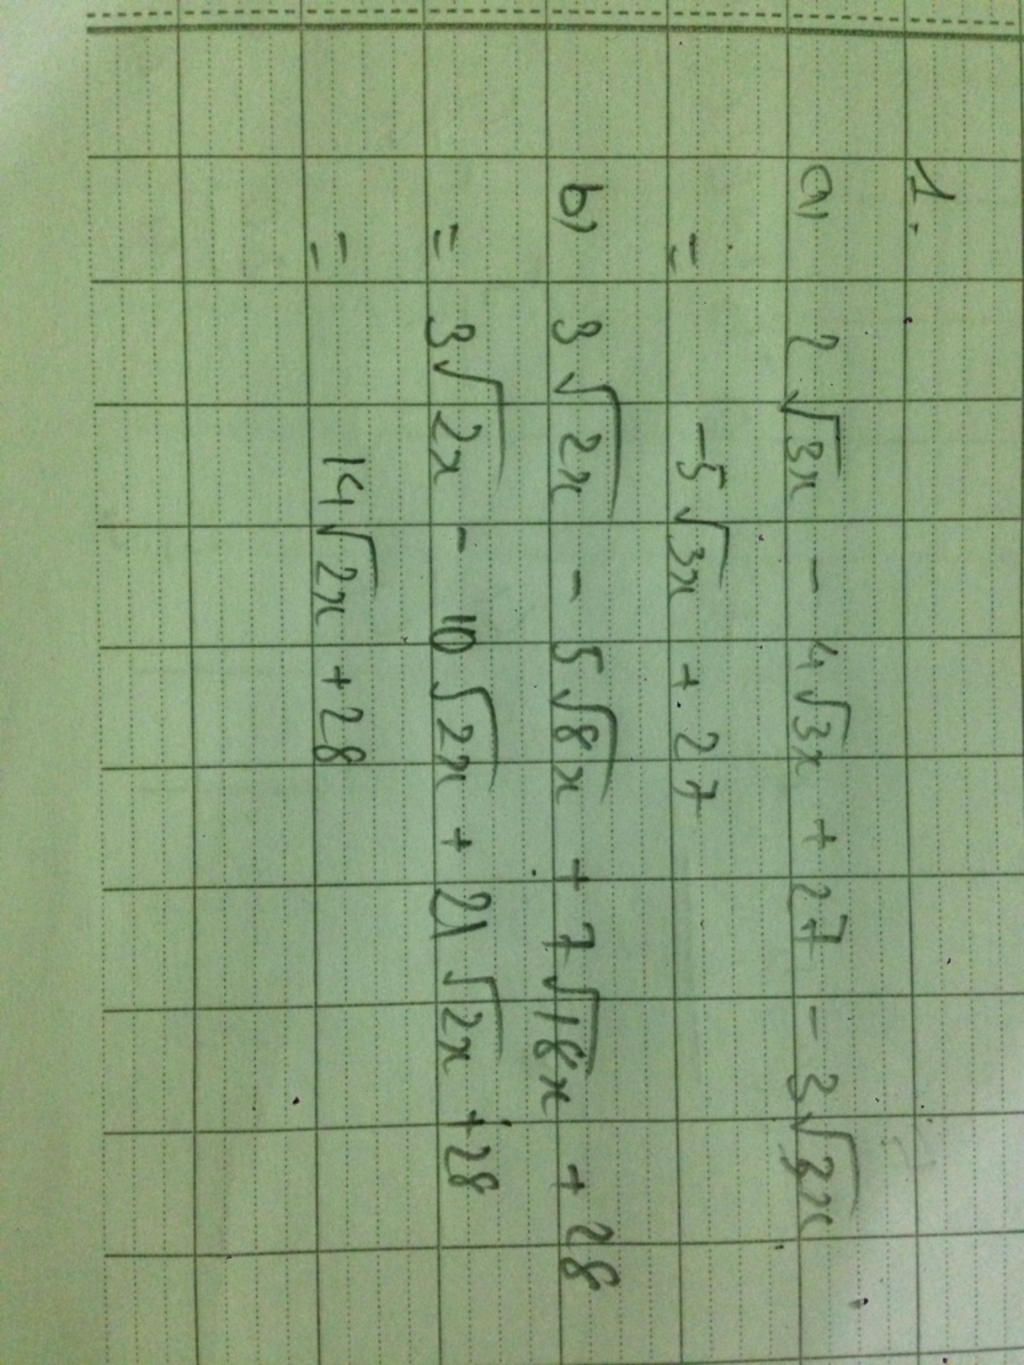 1.
a) 2√3x - 4√3x + 27 - 3√3x
= -5√3x + 27
b) 3√2x - 5√8x + 7√18x + 28
= 3√2x - 10√2x + 21√2x + 28
= 14√2x + 28